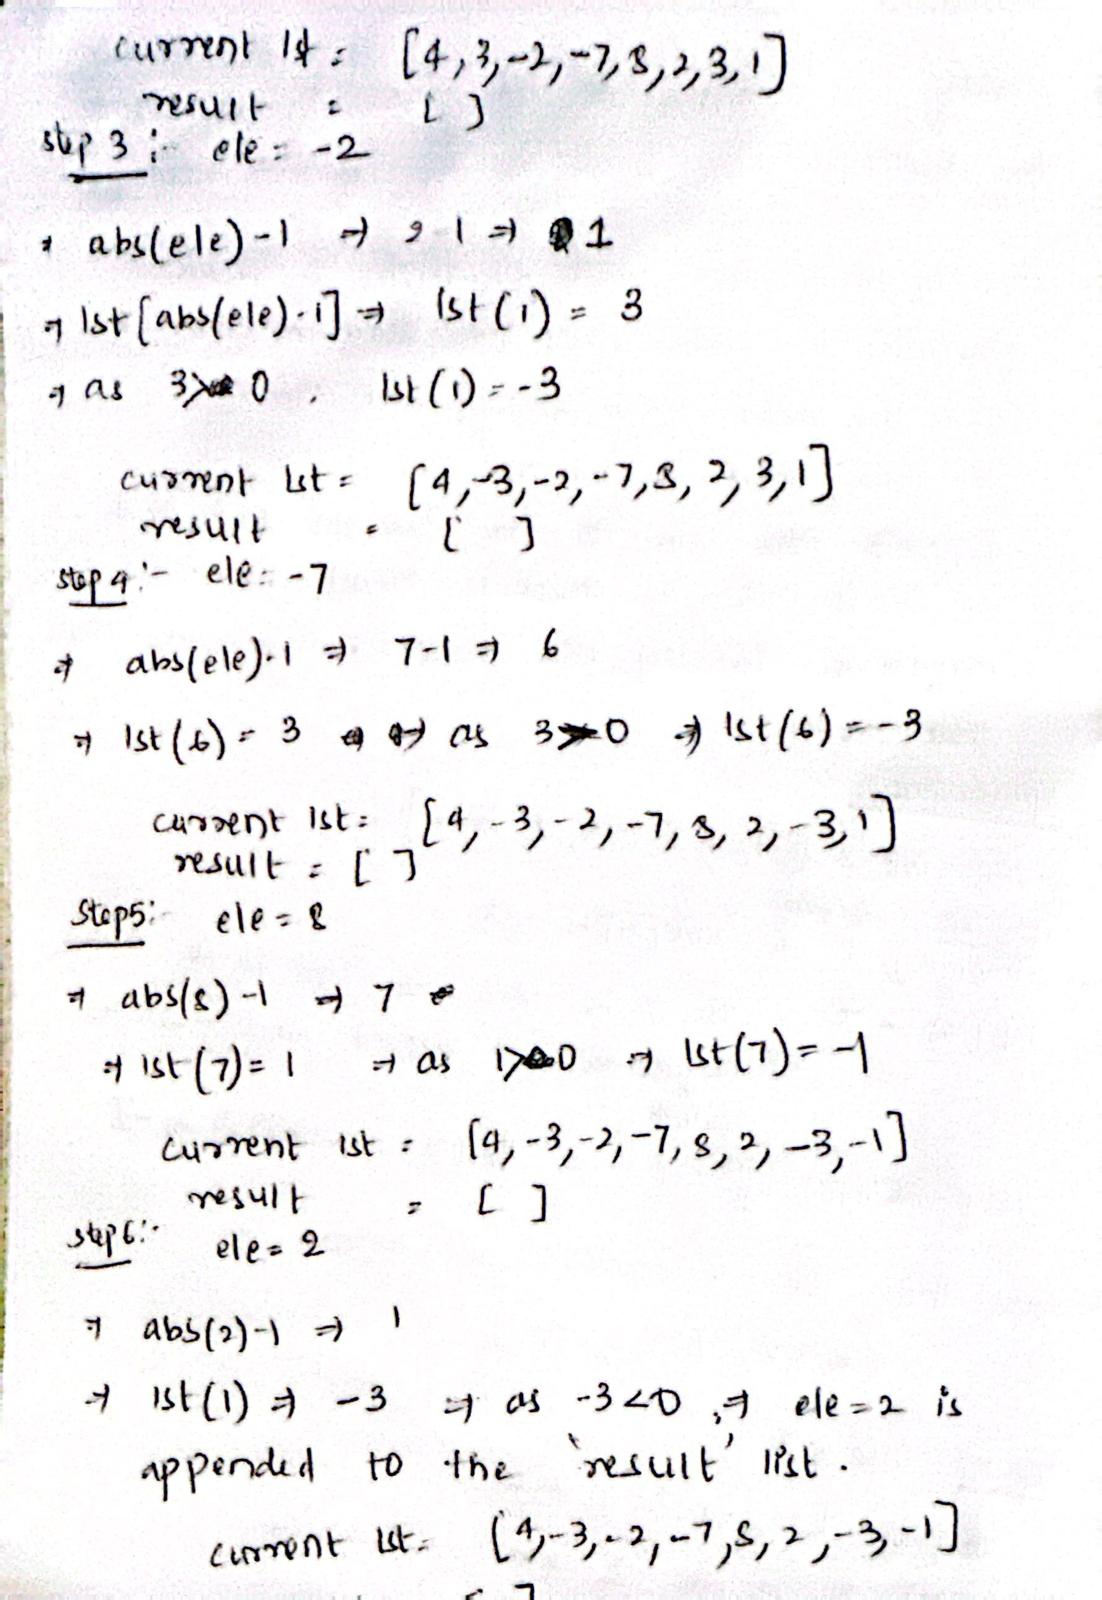 current lst = [4,3,-2,-7,8,2,3,1]
result = [ ]
step 3 :- ele = -2
⇒ abs(ele)-1 ⇒ 2-1 ⇒ 1
⇒ lst[abs(ele)-1] ⇒ lst(1) = 3
⇒ as 3>0, lst(1) = -3
current lst = [4,-3,-2,-7,8,2,3,1]
result = [ ]
step 4 :- ele = -7
⇒ abs(ele)-1 ⇒ 7-1 ⇒ 6
⇒ lst(6) = 3 ⇒ as 3>0 ⇒ lst(6) = -3
current lst = [4,-3,-2,-7,8,2,-3,1]
result = [ ]
Step5:- ele = 8
⇒ abs(8)-1 ⇒ 7
⇒ lst(7) = 1 ⇒ as 1>0 ⇒ lst(7) = -1
current lst = [4,-3,-2,-7,8,2,-3,-1]
result = [ ]
step6:- ele = 2
⇒ abs(2)-1 ⇒ 1
⇒ lst(1) ⇒ -3 ⇒ as -3<0, ⇒ ele=2 is
appended to the 'result' list.
current lst = [4,-3,-2,-7,8,2,-3,-1]